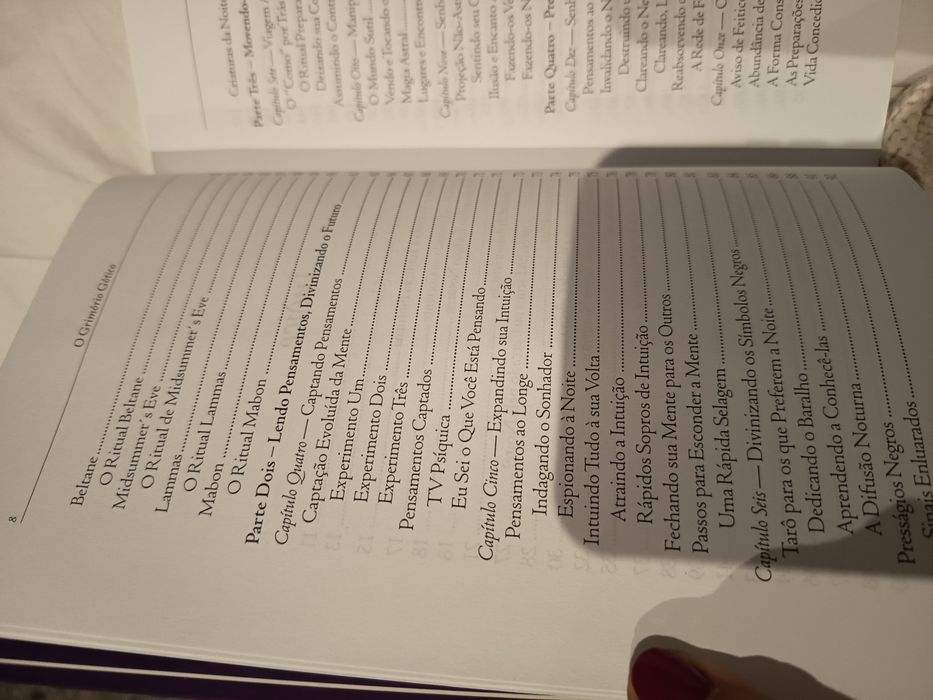 8
O Grimório Gótico
Beltane
O Ritual Beltane
Midsummer's Eve
O Ritual de Midsummer's Eve
Lammas
O Ritual Lammas
Mabon
O Ritual Mabon
Parte Dois – Lendo Pensamentos, Divinizando o Futuro
Capítulo Quatro — Captando Pensamentos
Captação Evoluída da Mente
Experimento Um
Experimento Dois
Experimento Três
Pensamentos Captados
TV Psíquica
Eu Sei o Que Você Está Pensando
Capítulo Cinco — Expandindo sua Intuição
Pensamentos ao Longe
Indagando o Sonhador
Espionando à Noite
Intuindo Tudo à sua Volta
Atraindo a Intuição
Rápidos Sopros de Intuição
Fechando sua Mente para os Outros
Passos para Esconder a Mente
Uma Rápida Selagem
Capítulo Seis — Divinizando os Símbolos Negros
Tarô para os que Preferem a Noite
Dedicando o Baralho
Aprendendo a Conhecê-las
A Difusão Noturna
Presságios Negros
Sinais Enluarados
Criaturas da Noite
Parte Três – Movendo-
Capítulo Sete — Viagem
O "Como" por Trás
O Ritual Prepara
Deixando sua Co
Assumindo o Contr
Capítulo Oito — Manip
O Mundo Sutil
Vendo e Tocando o
Magia Astral
Lugares e Encontro
Capítulo Nove — Senho
Projeção Não-Ast
Sentindo seu C
Ilusão e Encanto
Fazendo-os Ve
Fazendo-os N
Parte Quatro – Pre
Capítulo Dez — Senh
Pensamentos ao
Invalidando o N
Destruindo u
Clareando o Ne
Clareando, L
Reabsorvendo o
A Rede de F
Capítulo Onze — C
Aviso de Feitice
Abundância de
A Forma Cons
As Preparações
Vida Concedid